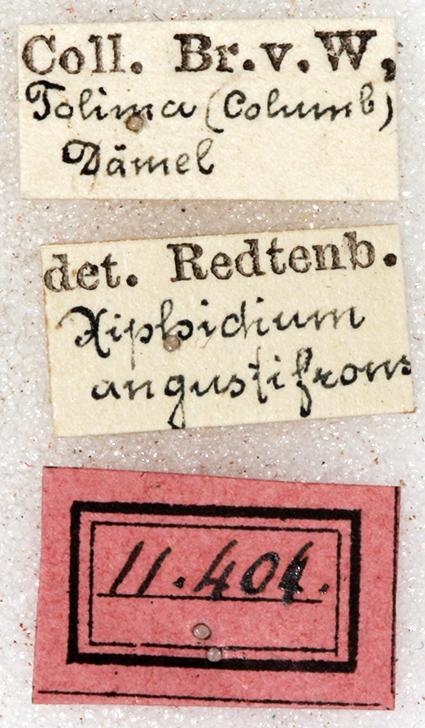 Coll. Br. v. W,
Tolima (Columb)
Dämel
det. Redtenb.
Xiphidium
angustifrons
11.404.